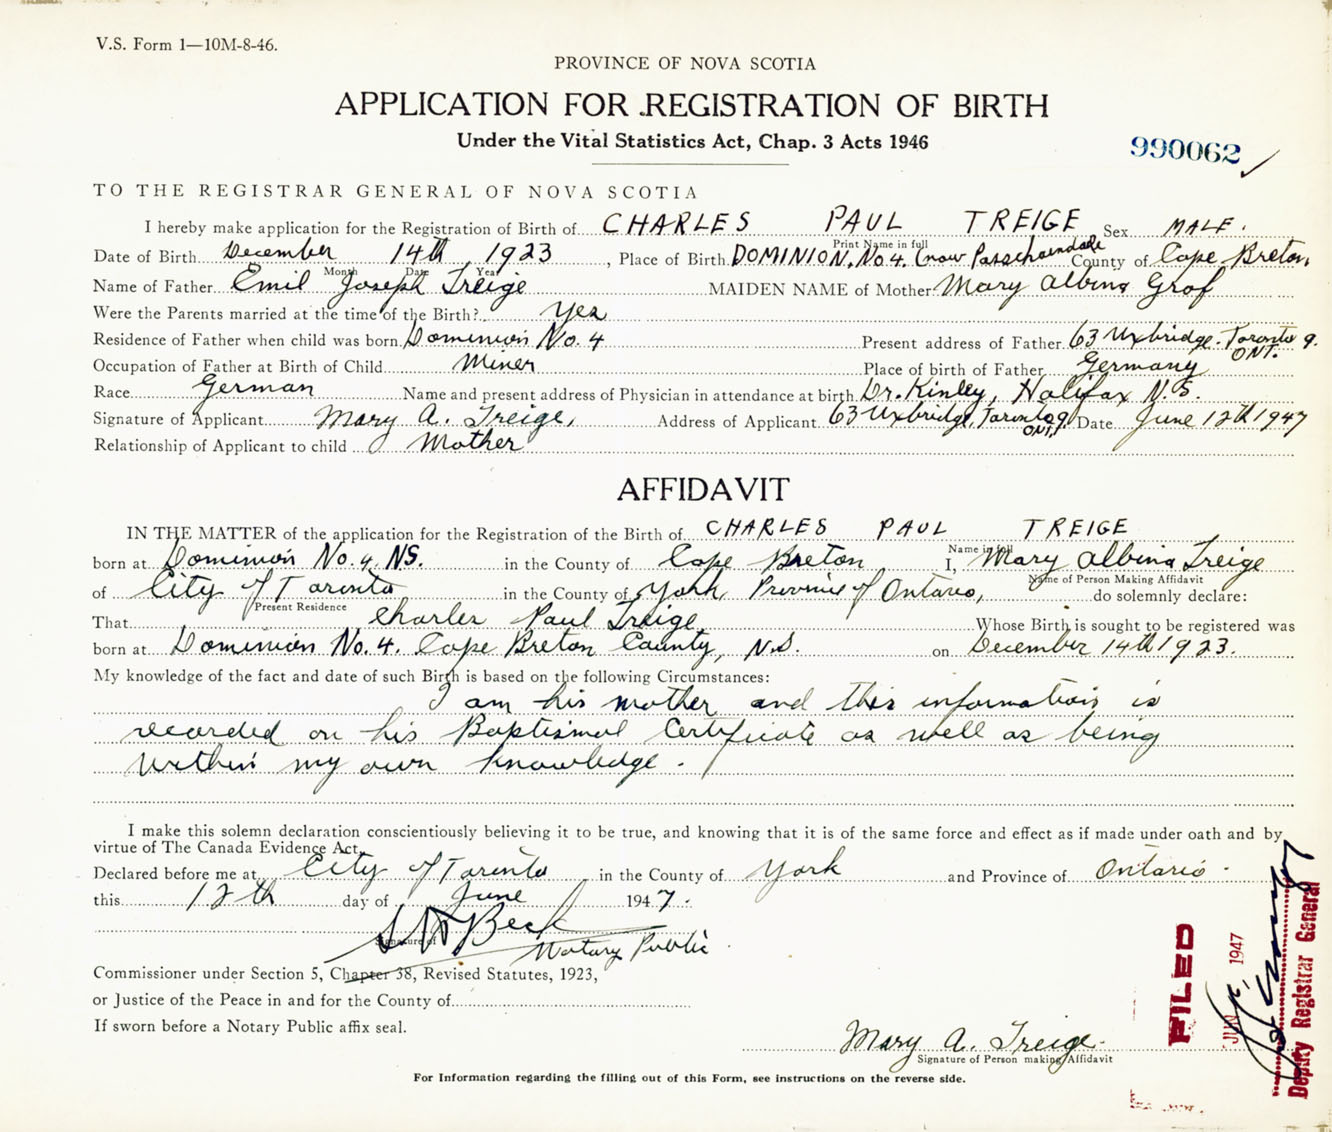 V.S. Form 1—10M-8-46.
PROVINCE OF NOVA SCOTIA
APPLICATION FOR REGISTRATION OF BIRTH
Under the Vital Statistics Act, Chap. 3 Acts 1946
990062
TO THE REGISTRAR GENERAL OF NOVA SCOTIA
I hereby make application for the Registration of Birth of CHARLES PAUL TREIGE Sex MALE.
Print Name in full
Date of Birth December 14th 1923, Place of Birth DOMINION, No 4. (now Passchaendale County of Cape Breton,
Month Date Year
Name of Father Emil Joseph Treige MAIDEN NAME of Mother Mary Albina Graf
Were the Parents married at the time of the Birth? Yes
Residence of Father when child was born Dominion No. 4 Present address of Father 63 Uxbridge. Toronto 9. ONT.
Occupation of Father at Birth of Child Miner Place of birth of Father Germany
Race German Name and present address of Physician in attendance at birth Dr. Kinley, Halifax N.S.
Signature of Applicant Mary A. Treige, Address of Applicant 63 Uxbridge, Toronto 9 ONT. Date June 12th 1947
Relationship of Applicant to child Mother
AFFIDAVIT
IN THE MATTER of the application for the Registration of the Birth of CHARLES PAUL TREIGE
Name in full
born at Dominion No. 4, NS. in the County of Cape Breton I, Mary Albina Treige
Name of Person Making Affidavit
of City of Toronto in the County of York, Province of Ontario, do solemnly declare:
Present Residence
That Charles Paul Treige Whose Birth is sought to be registered was
born at Dominion No. 4. Cape Breton County, N.S. on December 14th 1923.
My knowledge of the fact and date of such Birth is based on the following Circumstances:
I am his mother and this information is
recorded on his Baptismal Certificate as well as being
within my own knowledge.
I make this solemn declaration conscientiously believing it to be true, and knowing that it is of the same force and effect as if made under oath and by
virtue of The Canada Evidence Act.
Declared before me at City of Toronto in the County of York and Province of Ontario.
this 12th day of June 1947.
Signature of
Beck
Notary Public
Commissioner under Section 5, Chapter 38, Revised Statutes, 1923,
or Justice of the Peace in and for the County of
If sworn before a Notary Public affix seal.
Mary A. Treige.
Signature of Person making Affidavit
For Information regarding the filling out of this Form, see instructions on the reverse side.
FILED
JUN 1947
Deputy Registrar General